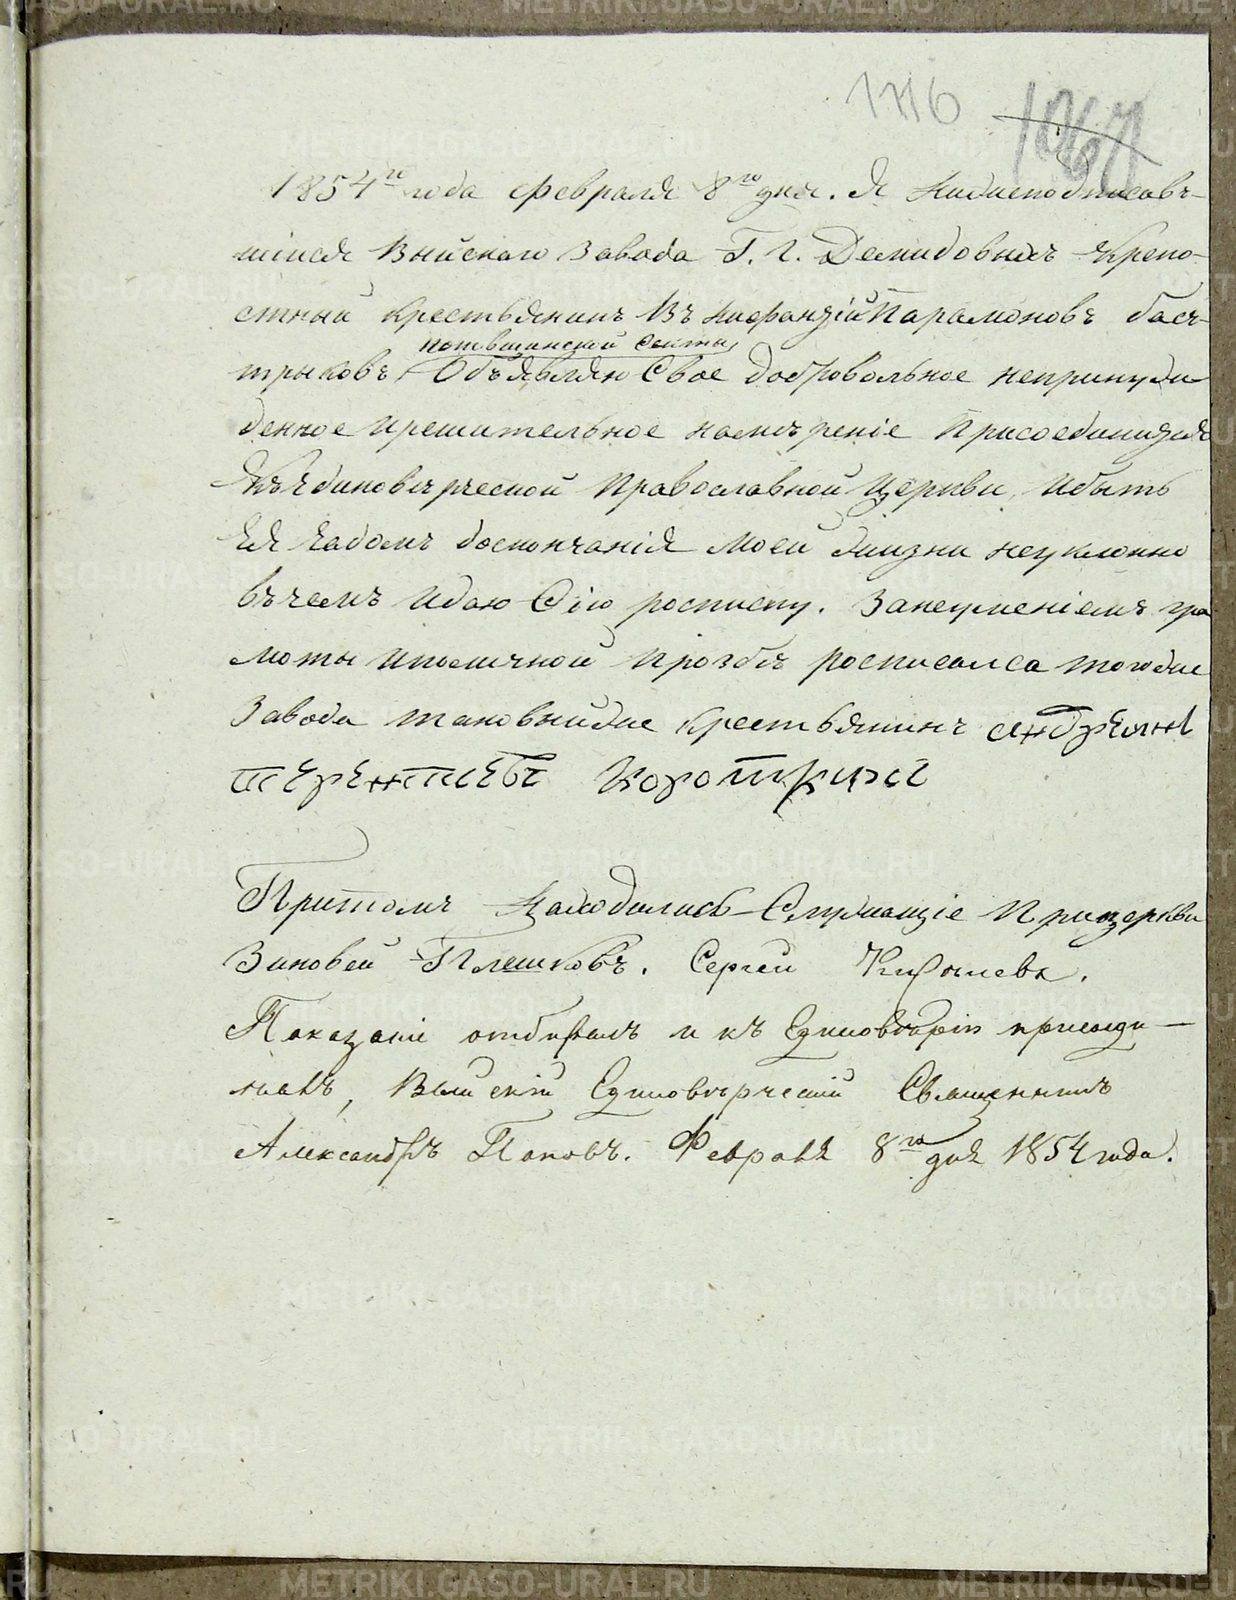 1776 1067
1854го года февраля 8го дня. Я нижеподписавъ-
шійся Выйскаго Завода Г. Г. Демидовыхъ крепо-
стный крестьянинъ Парамоновъ
поповщинской секты
Объявляю Свое добровольное непринуж-
денное ирешительное намѣреніе Присоединится
къ Единоверческой Православной Церкви, ибыть
Ея Чадомъ доскончанія моей жизни неуклонно
въчемъ идаю Сію росписку. Занеуменіемъ гра
моты иполичной прозбѣ росписался тогоже
Завода таковыйже крестьянинъ
терентиевъ
Притомъ Находились Служащіе Прицеркви
Зиновей Плешковъ. Сергей
Показаніе отбиралъ и къ Единоверію присоеди-
нилъ, Выйскій Единоверческій Священникъ
Александръ Поповъ. Февраля 8го дня 1854 года.
METRIKI.GASO-URAL.RU